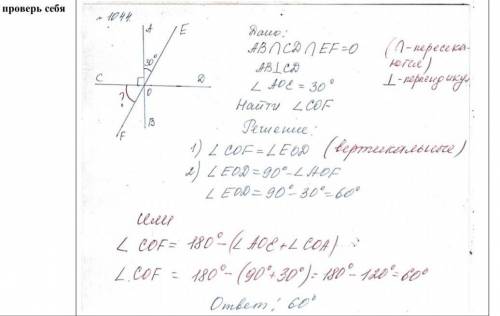 проверь себя
№ 1044.
A
E
30°
C
D
O
?
B
F
Дано:
AB∩CD∩EF=O (∩-пересекаются)
AB⊥CD ⊥-перпендикул
∠AOE=30°
Найти ∠COF
Решение:
1) ∠COF=∠EOD (вертикальные)
2) ∠EOD=90°-∠AOF
∠EOD=90°-30°=60°
Или
∠COF= 180°-(∠AOE+∠COA)
∠COF = 180°-(90°+30°)=180°-120°=60°
Ответ: 60°